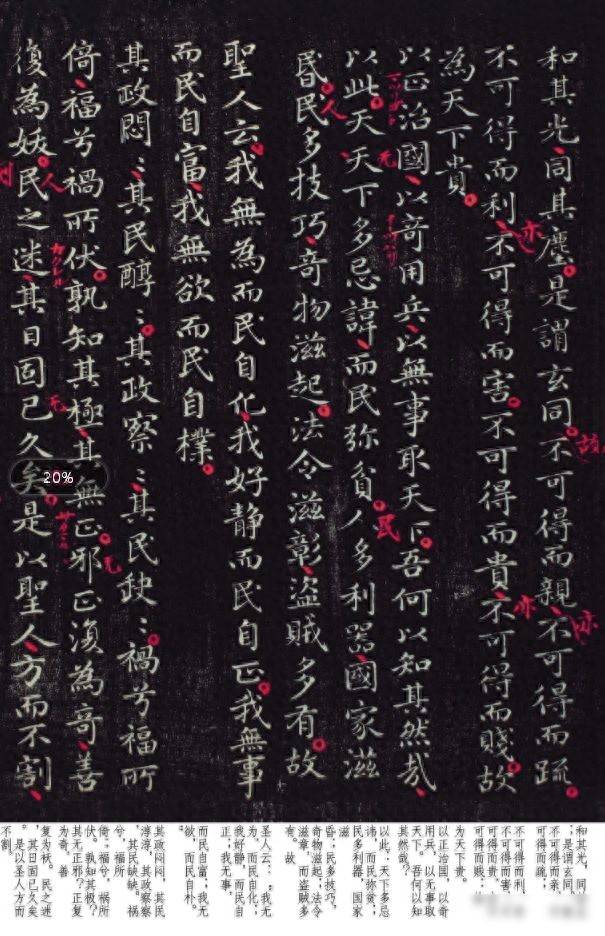 和其光同其塵是謂玄同不可得而親不可得而踈
不可得而利不可得而害不可得而貴不可得而賤故
為天下貴
以正治國以奇用兵以無事取天下吾何以知其然哉
以此天天下多忌諱而民弥貧人多利器國家滋
昬民多技巧奇物滋起法令滋彰盜賊多有故
聖人云我無為而民自化我好静而民自正我無事
而民自富我無欲而民自樸
其政悶〻其民醇〻其政察〻其民缺〻禍兮福所
倚福兮禍所伏孰知其極其無正邪正復為奇善
復為妖民之迷其日固已久矣是以聖人方而不割
故
亦
亦
亦
无
民
人
无
人
无
20%
和其光，同
；是谓玄同。
不可得而亲，
可得而疏；
不可得而利，
不可得而害，
可得而贵，
可得而贱：
为天下贵。
以正治国，以奇
用兵，以无事取
天下。吾何以知
其然哉？
以此：天下多忌
讳，而民弥贫；
民多利器，国家
滋
昏；民多技巧，
奇物滋起；法令
滋章，而盗贼多
有。故
圣人云：“我无
为，而民自化；
我好静，而民自
正；我无事，
而民自富；我无
欲，而民自朴。
其政闷闷，其民
淳淳，其政察察
，其民缺缺。祸
兮，福所
倚；福兮，祸所
伏。孰知其极？
其无正邪？正复
为奇，善
复为袄。民之迷
，其日固已久矣
。是以圣人方而
不割。